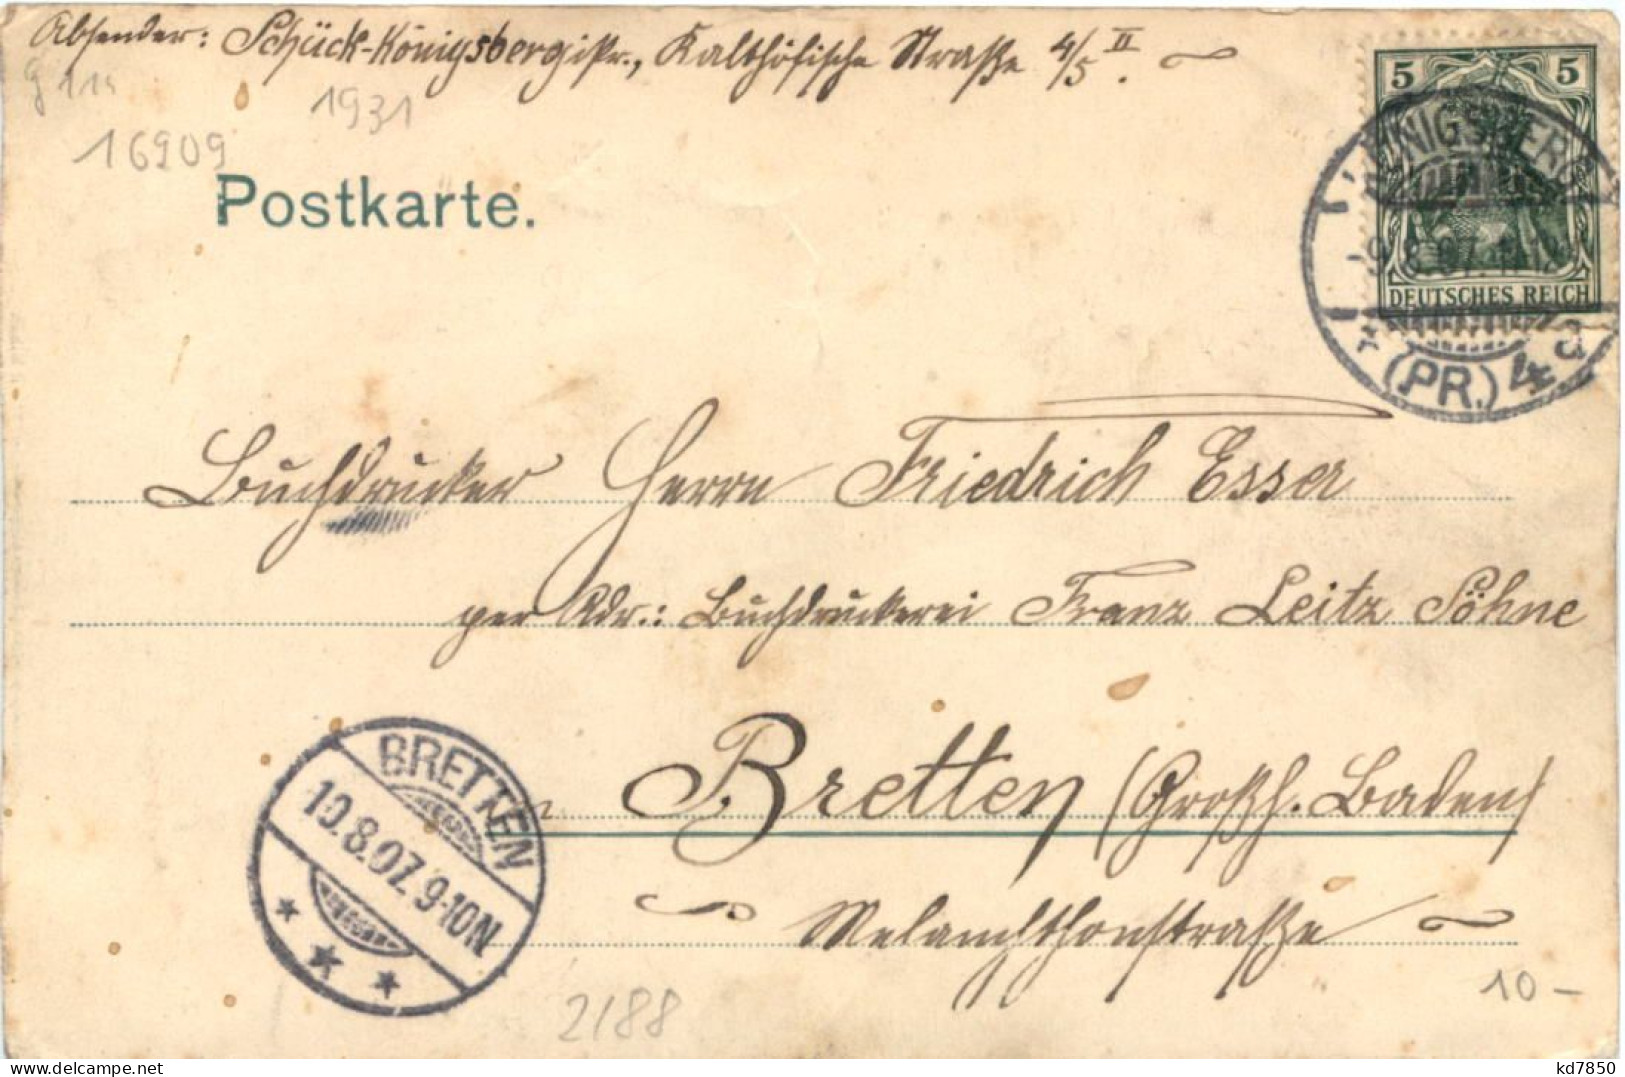 Absender: Schück-Königsberg i/Pr., Kalthöfische Straße 4/5 II.
1931
16909
Postkarte.
5 5
KÖNIGSBERG
9.8.07.
DEUTSCHES REICH
* (PR.) 4 a
Buchdrucker Herrn Friedrich Esser
per Adr.: Buchdruckerei Franz Leitz Söhne
Bretten (Großh. Baden)
Melanchthonstraße
BRETTEN
10.8.07. 9-10N
2188
10 –
kd7850